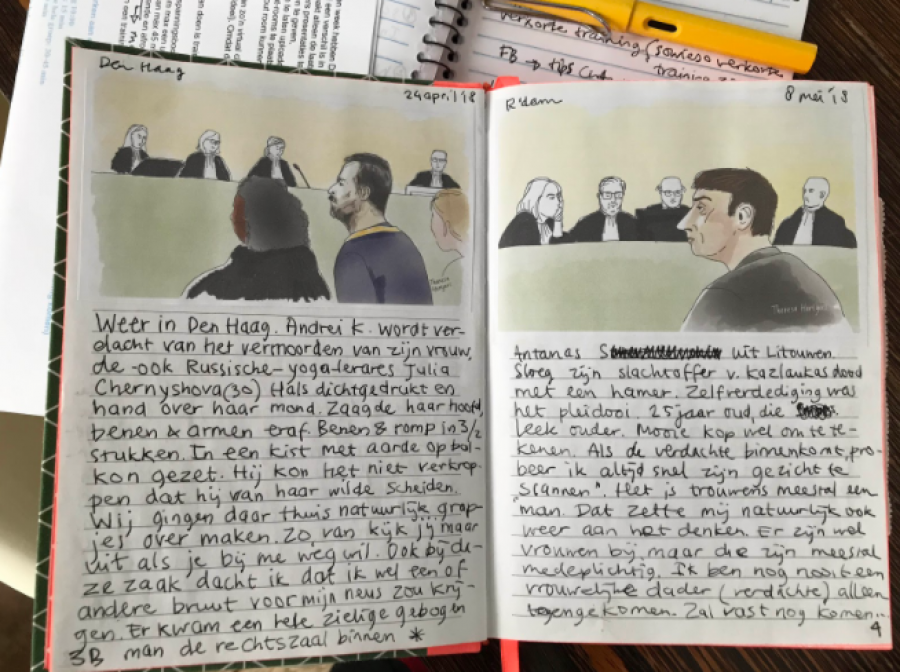 verkorte training (sowieso verkorte
training
FB → tips
Den Haag
24 april '18
Weer in Den Haag. Andrei K. wordt ver-
dacht van het vermoorden van zijn vrouw,
de -ook Russische- yogalerares Julia
Chernyshova (30) Hals dichtgedrukt en
hand over haar mond. Zaagde haar hoofd,
benen & armen eraf. Benen & romp in 3/2
stukken. In een kist met aarde op bal-
kon gezet. Hij kon het niet verkrop-
pen dat hij van haar wilde scheiden.
Wij gingen daar thuis natuurlijk grap-
jes over maken. Zo van kijk jij maar
uit als je bij me weg wil. Ook bij de-
ze zaak dacht ik dat ik wel een of
andere bruut voor mijn neus zou krij-
gen. Er kwam een hele zielige gebogen
3B man de rechtszaal binnen *
R'dam
8 mei '18
Antanas S uit Litouwen
Sloeg zijn slachtoffer v. Kazlaukas dood
met een hamer. Zelfverdediging was
het pleidooi. 25 jaar oud, die
leek ouder. Mooie kop wel om te te-
kenen. Als de verdachte binnenkomt, pro-
beer ik altijd snel zijn gezicht te
"scannen". Het is trouwens meestal een
man. Dat zette mij natuurlijk ook
weer aan het denken. Er zijn wel
vrouwen bij, maar die zijn meestal
medeplichtig. Ik ben nog nooit een
vrouwelijke dader (verdachte) alleen
tegengekomen. Zal vast nog komen..
4